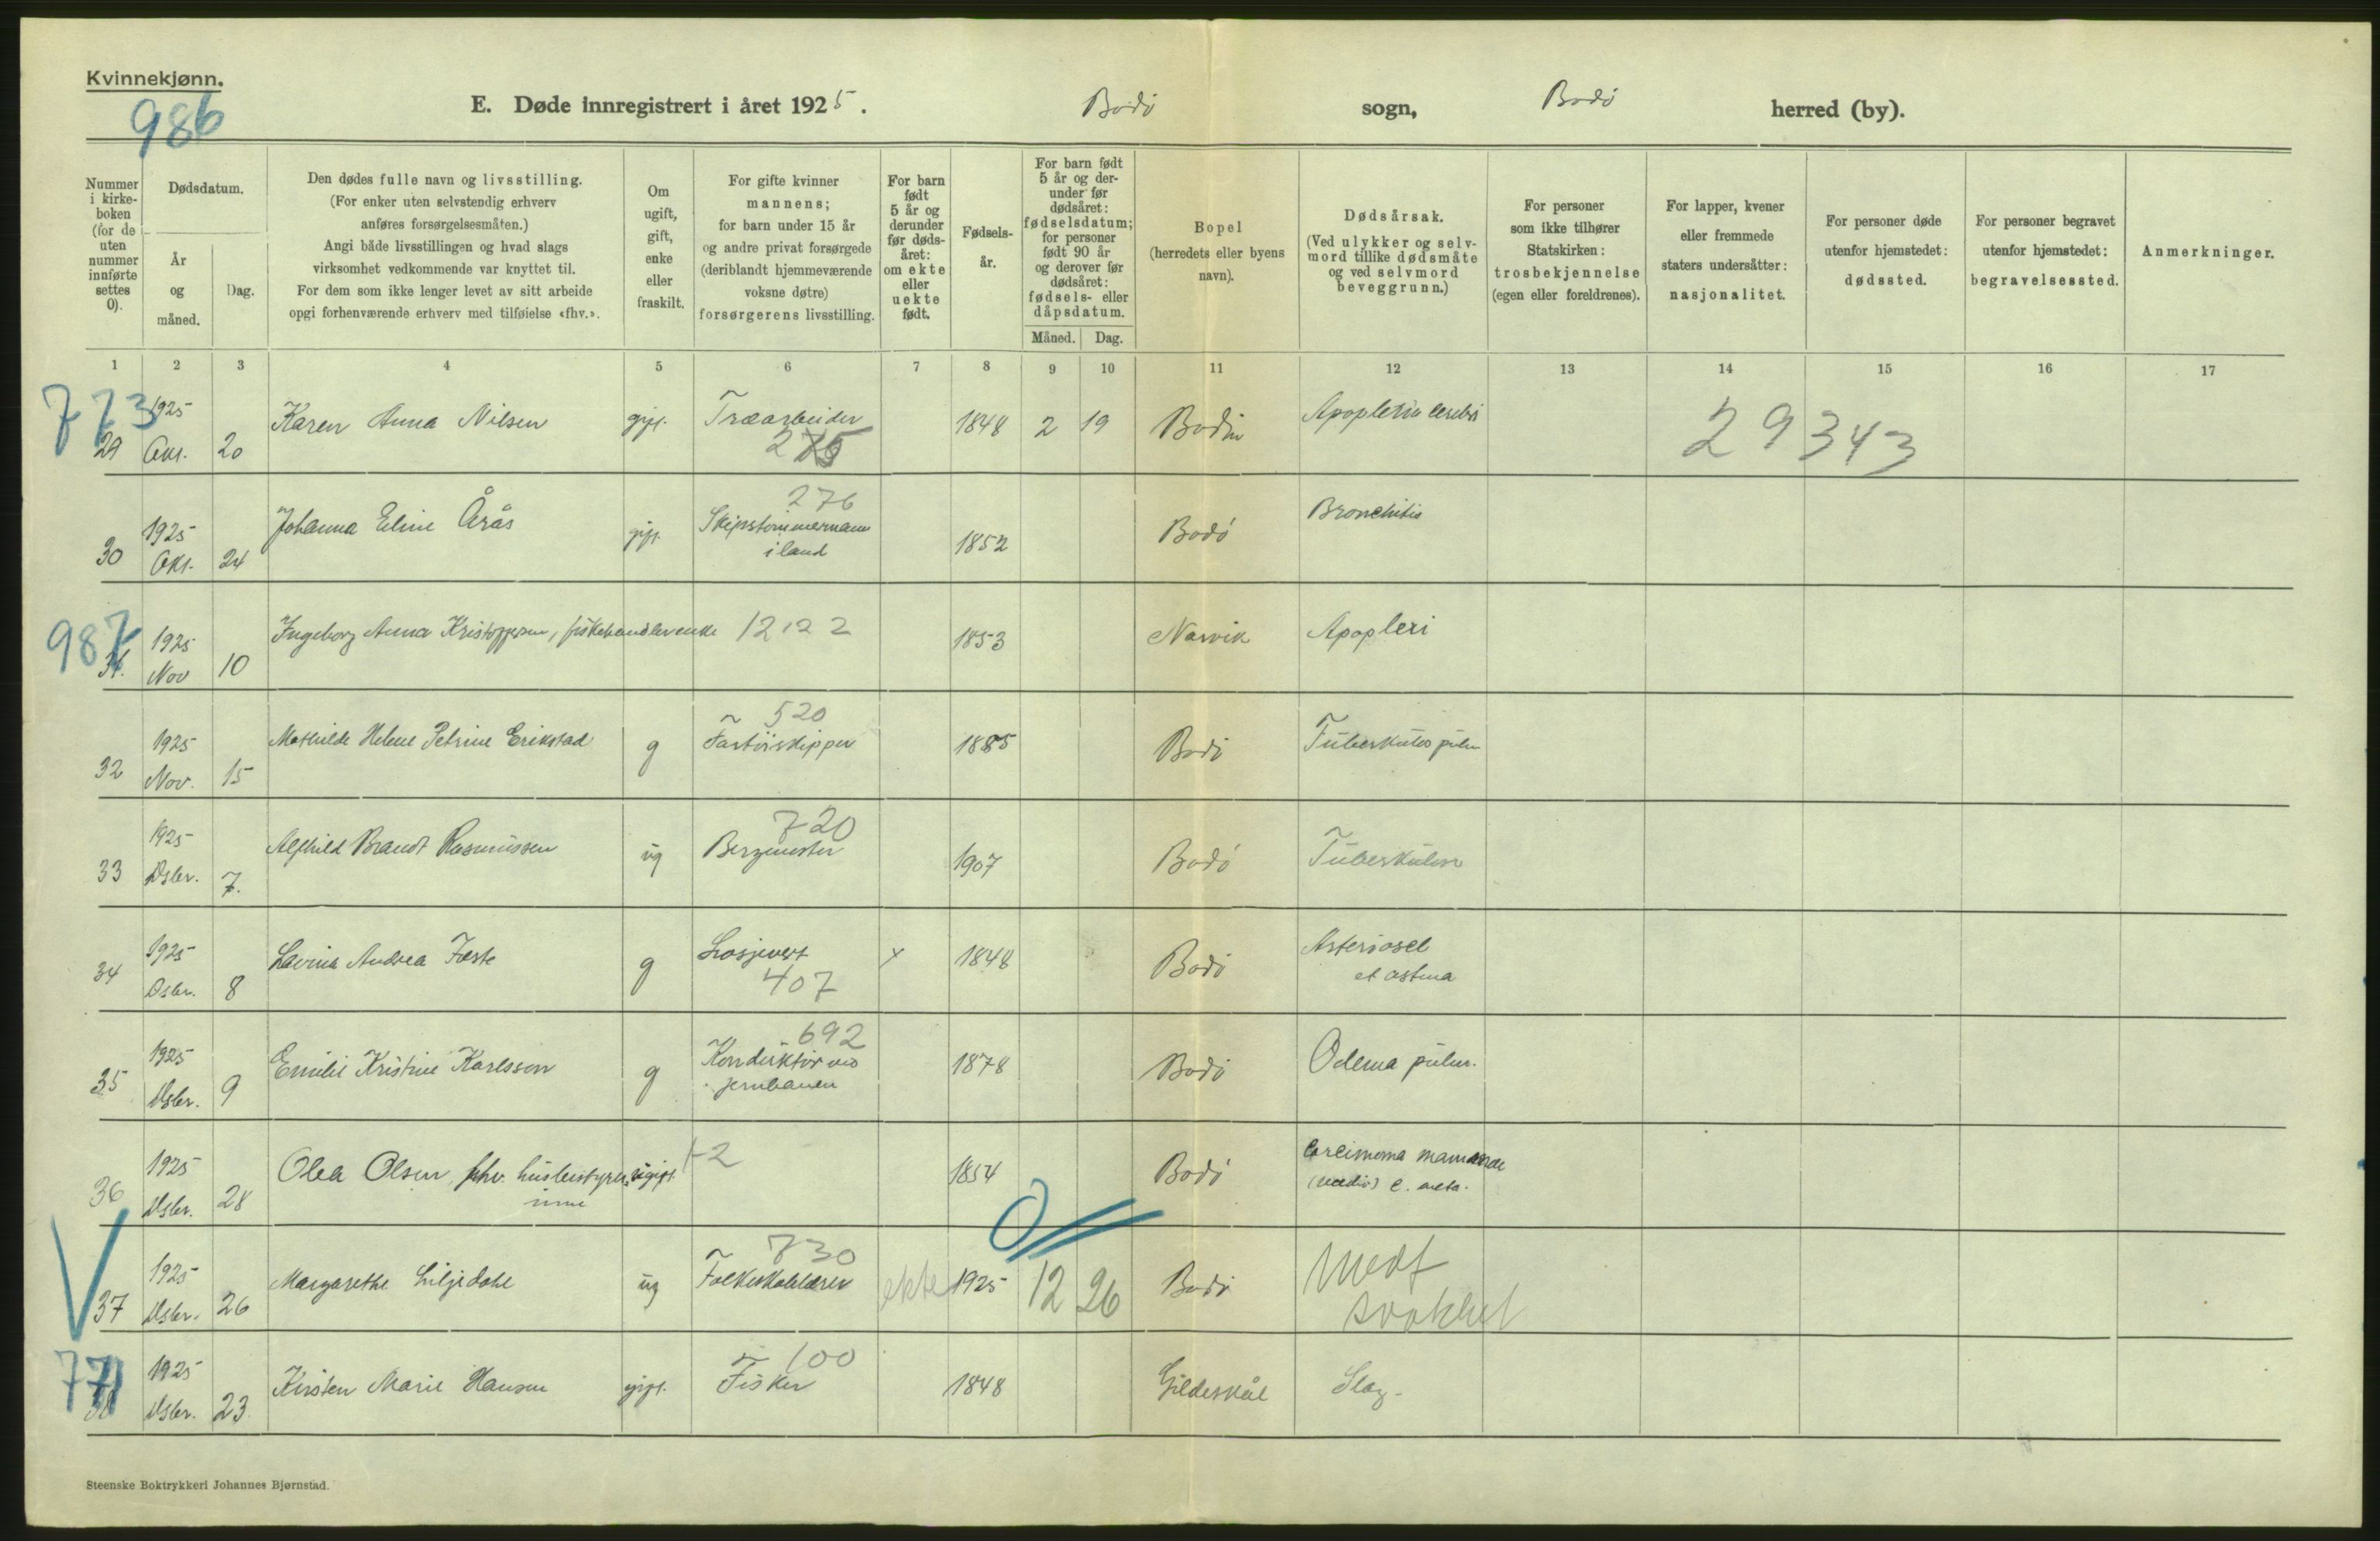 Kvinnekjønn.
986
E. Døde innregistrert i året 1925. Bodö sogn, Bodö herred (by).
Nummer i kirke-boken (for de uten nummer innførte settes 0).
Dødsdatum.
År og måned.
Dag.
Den dødes fulle navn og livsstilling.
(For enker uten selvstendig erhverv
anføres forsørgelsesmåten.)
Angi både livsstillingen og hvad slags
virksomhet vedkommende var knyttet til.
For dem som ikke lenger levet av sitt arbeide
opgi forhenværende erhverv med tilføielse «fhv.».
Om ugift, gift, enke eller fraskilt.
For gifte kvinner
mannens;
for barn under 15 år
og andre privat forsørgede
(deriblandt hjemmeværende
voksne døtre)
forsørgerens livsstilling.
For barn født 5 år og derunder før døds-året: om ekte eller uekte født.
Fødsels-år.
For barn født 5 år og der-under før dødsåret: fødselsdatum; for personer født 90 år og derover før dødsåret: fødsels- eller dåpsdatum.
Måned. Dag.
Bopel
(herredets eller byens
navn).
Dødsårsak.
(Ved ulykker og selv-
mord tillike dødsmåte
og ved selvmord
beveggrunn.)
For personer
som ikke tilhører
Statskirken:
trosbekjennelse
(egen eller foreldrenes).
For lapper, kvener
eller fremmede
staters undersåtter:
nasjonalitet.
For personer døde
utenfor hjemstedet:
dødssted.
For personer begravet
utenfor hjemstedet:
begravelsessted.
Anmerkninger.
1 2 3 4 5 6 7 8 9 10 11 12 13 14 15 16 17
773 29 1925 Okt. 20 Karen Anna Nilsen gift. Træarbeider 275 1848 2 19 Bodin Apoplexia cerebri 29343
30 1925 Okt. 24 Johanna Eline Årås gift. 276 Skipstømmermann i land 1852 Bodö Bronchitis
987 31. 1925 Nov 10 Ingeborg Anna Kristoffersen, fiskehandlerenke 1853 Narvik Apoplexi
32 1925 Nov. 15 Mathilde Helene Petrine Erikstad g 520 Fartöiskipper 1885 Bodö Tüberkulos pulm
33 1925 Dsbr. 7. Alfhild Brandt Rasmüssen üg 720 Bergmester 1907 Bodö Tüberkulose
34 1925 Dsbr. 8 Lavina Andrea g Losjevert 407 x 1848 Bodö Arterioscl et astma
35 1925 Dsbr. 9 Emilie Kristine Karlsson g 692 Kondüktör ved jernbanen 1878 Bodö Odema pülm.
36 1925 Dsbr. 28 Olea Olsen, fhv. hüsbestyrerinne ügift. 1854 Bodö
37 1925 Dsbr. 26 Margarethe Liljedahl üg 730 Folkeskolelærer ekte 1925 12 26 Bodö Medf svakhet
771 38 1925 Dsbr. 23 Kirsten Marie Hansen gift. 100 Fisker 1848 Gildeskål Slag.
Steenske Boktrykkeri Johannes Bjørnstad.